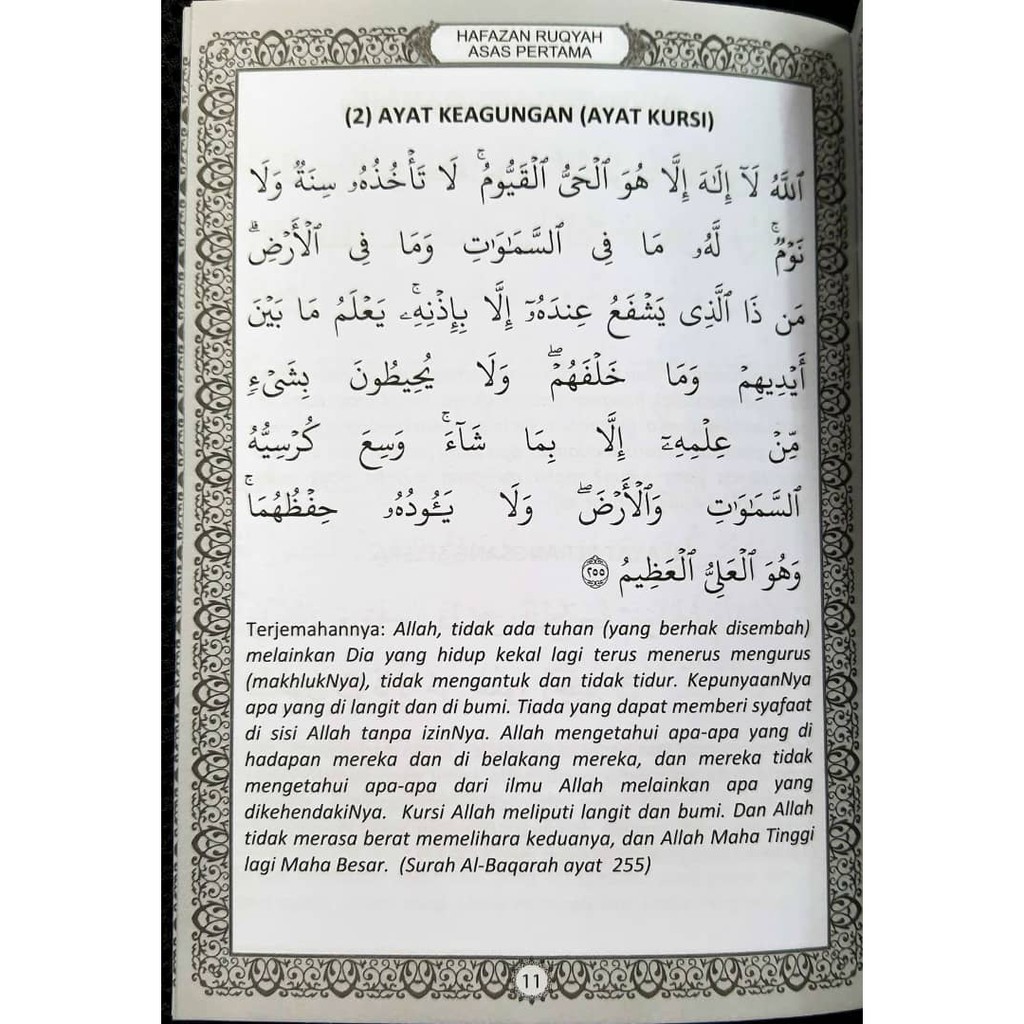 HAFAZAN RUQYAH
ASAS PERTAMA
(2) AYAT KEAGUNGAN (AYAT KURSI)
ٱللَّهُ لَآ إِلَـٰهَ إِلَّا هُوَ ٱلۡحَىُّ ٱلۡقَيُّومُۚ لَا تَأۡخُذُهُۥ سِنَةٌ وَلَا
نَوۡمٌۚ لَّهُۥ مَا فِى ٱلسَّمَـٰوَٰتِ وَمَا فِى ٱلۡأَرۡضِۗ
مَن ذَا ٱلَّذِى يَشۡفَعُ عِندَهُۥٓ إِلَّا بِإِذۡنِهِۦۚ يَعۡلَمُ مَا بَيۡنَ
أَيۡدِيهِمۡ وَمَا خَلۡفَهُمۡۖ وَلَا يُحِيطُونَ بِشَىۡءٍ
مِّنۡ عِلۡمِهِۦٓ إِلَّا بِمَا شَآءَۚ وَسِعَ كُرۡسِيُّهُ
ٱلسَّمَـٰوَٰتِ وَٱلۡأَرۡضَۖ وَلَا يَـُٔودُهُۥ حِفۡظُهُمَاۚ
وَهُوَ ٱلۡعَلِىُّ ٱلۡعَظِيمُ ٢٥٥
Terjemahannya: Allah, tidak ada tuhan (yang berhak disembah)
melainkan Dia yang hidup kekal lagi terus menerus mengurus
(makhlukNya), tidak mengantuk dan tidak tidur. KepunyaanNya
apa yang di langit dan di bumi. Tiada yang dapat memberi syafaat
di sisi Allah tanpa izinNya. Allah mengetahui apa-apa yang di
hadapan mereka dan di belakang mereka, dan mereka tidak
mengetahui apa-apa dari ilmu Allah melainkan apa yang
dikehendakiNya. Kursi Allah meliputi langit dan bumi. Dan Allah
tidak merasa berat memelihara keduanya, dan Allah Maha Tinggi
lagi Maha Besar. (Surah Al-Baqarah ayat 255)
11